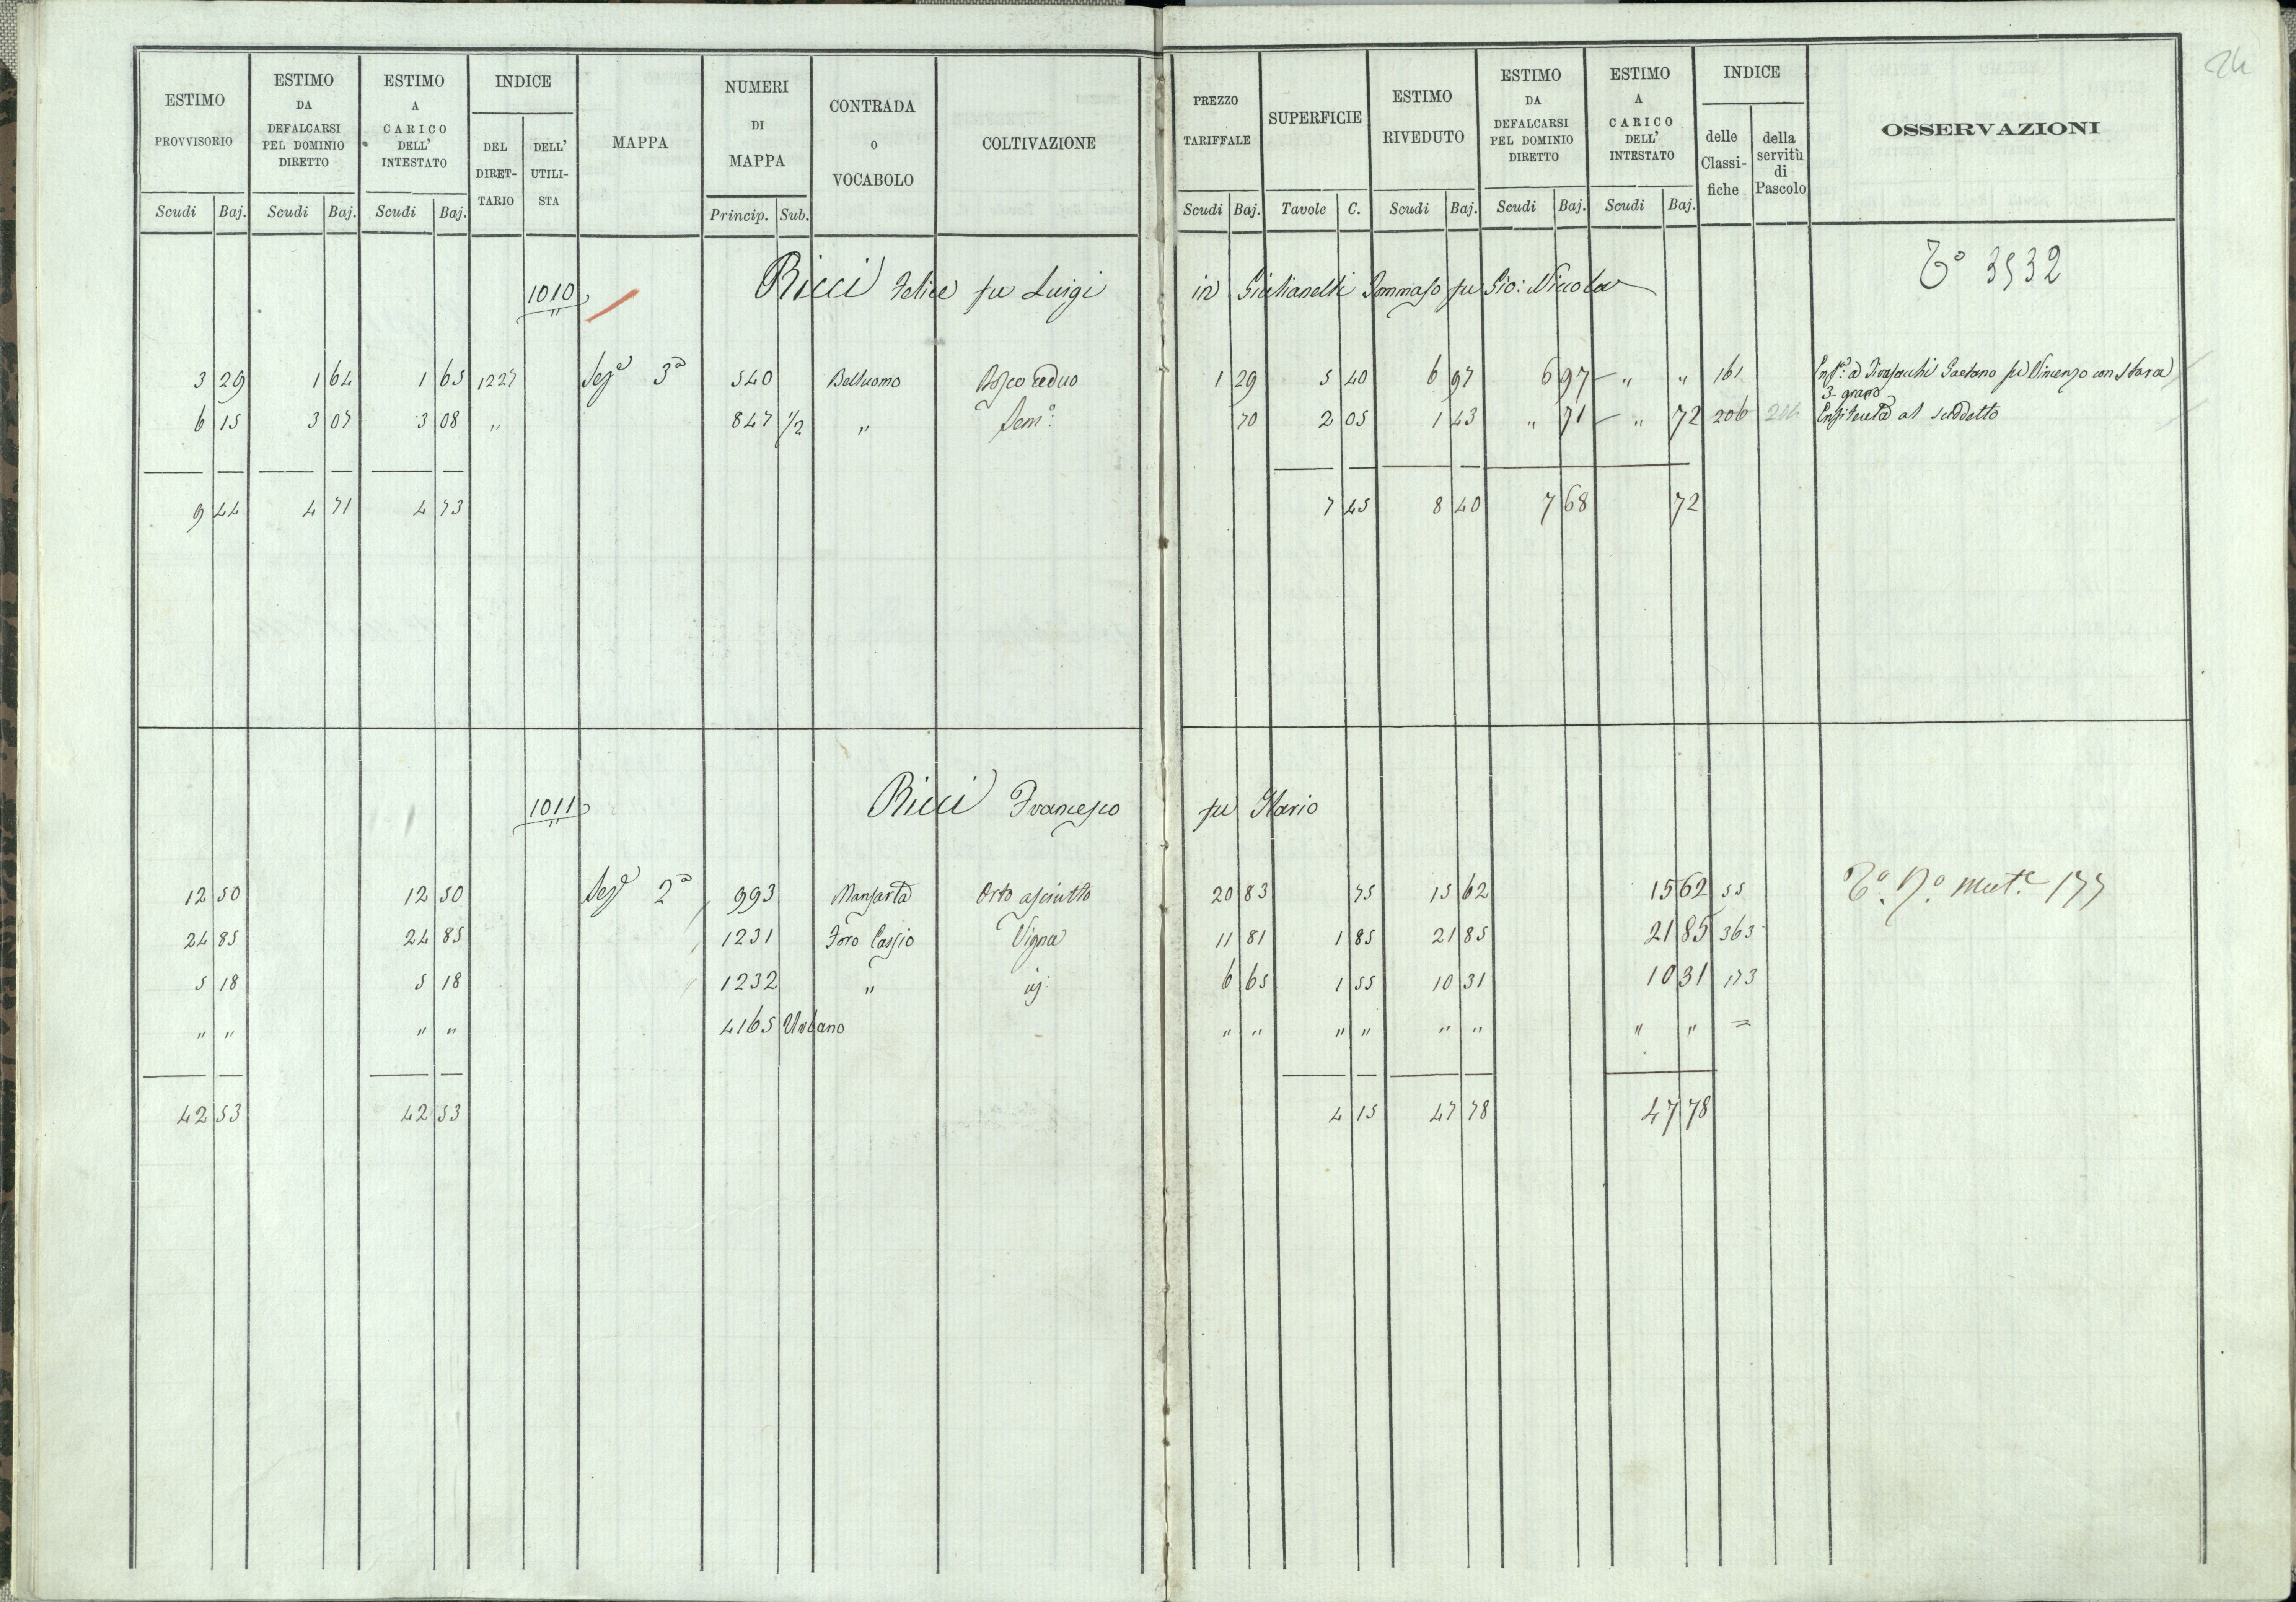 24
ESTIMO PROVVISORIO Scudi Baj.
ESTIMO DA DEFALCARSI PEL DOMINIO DIRETTO Scudi Baj.
ESTIMO A CARICO DELL' INTESTATO Scudi Baj.
INDICE DEL DIRETTARIO DELL' UTILISTA
MAPPA
NUMERI DI MAPPA Princip. Sub.
CONTRADA O VOCABOLO
COLTIVAZIONE
PREZZO TARIFFALE Scudi Baj.
SUPERFICIE Tavole C.
ESTIMO RIVEDUTO Scudi Baj.
ESTIMO DA DEFALCARSI PEL DOMINIO DIRETTO Scudi Baj.
ESTIMO A CARICO DELL' INTESTATO Scudi Baj.
INDICE delle Classifiche della servitù di Pascolo
OSSERVAZIONI
1010 Ricci Felice fu Luigi in Giulianelli Tommaso fu Gio: Nicola
Tº 3532
3 29 1 64 1 65 1227 Sezº 3ª 540 Belluomo Bosco ceduo 1 29 5 40 6 97 6 97 " " 161 Enfª: a Gaetano fu Vincenzo con stara
3 grano
6 15 3 07 3 08 " 847 1/2 " Semº: 70 2 05 1 43 " 71 " 72 206 206 Enfiteuta al suddetto
9 44 4 71 4 73 7 45 8 40 7 68 72
1011 Ricci Francesco fu Ilario
12 50 12 50 Sezº 2ª 993 Mansarta Orto asciutto 20 83 75 15 62 15 62 55 Tº. Nº. mut.e 177
24 85 24 85 1231 Foro Cassio Vigna 11 81 1 85 21 85 21 85 363
5 18 5 18 1232 " 6 65 1 55 10 31 10 31 173
" " " " 4165 Urbano " " " " " " " " =
42 53 42 53 4 15 47 78 47 78